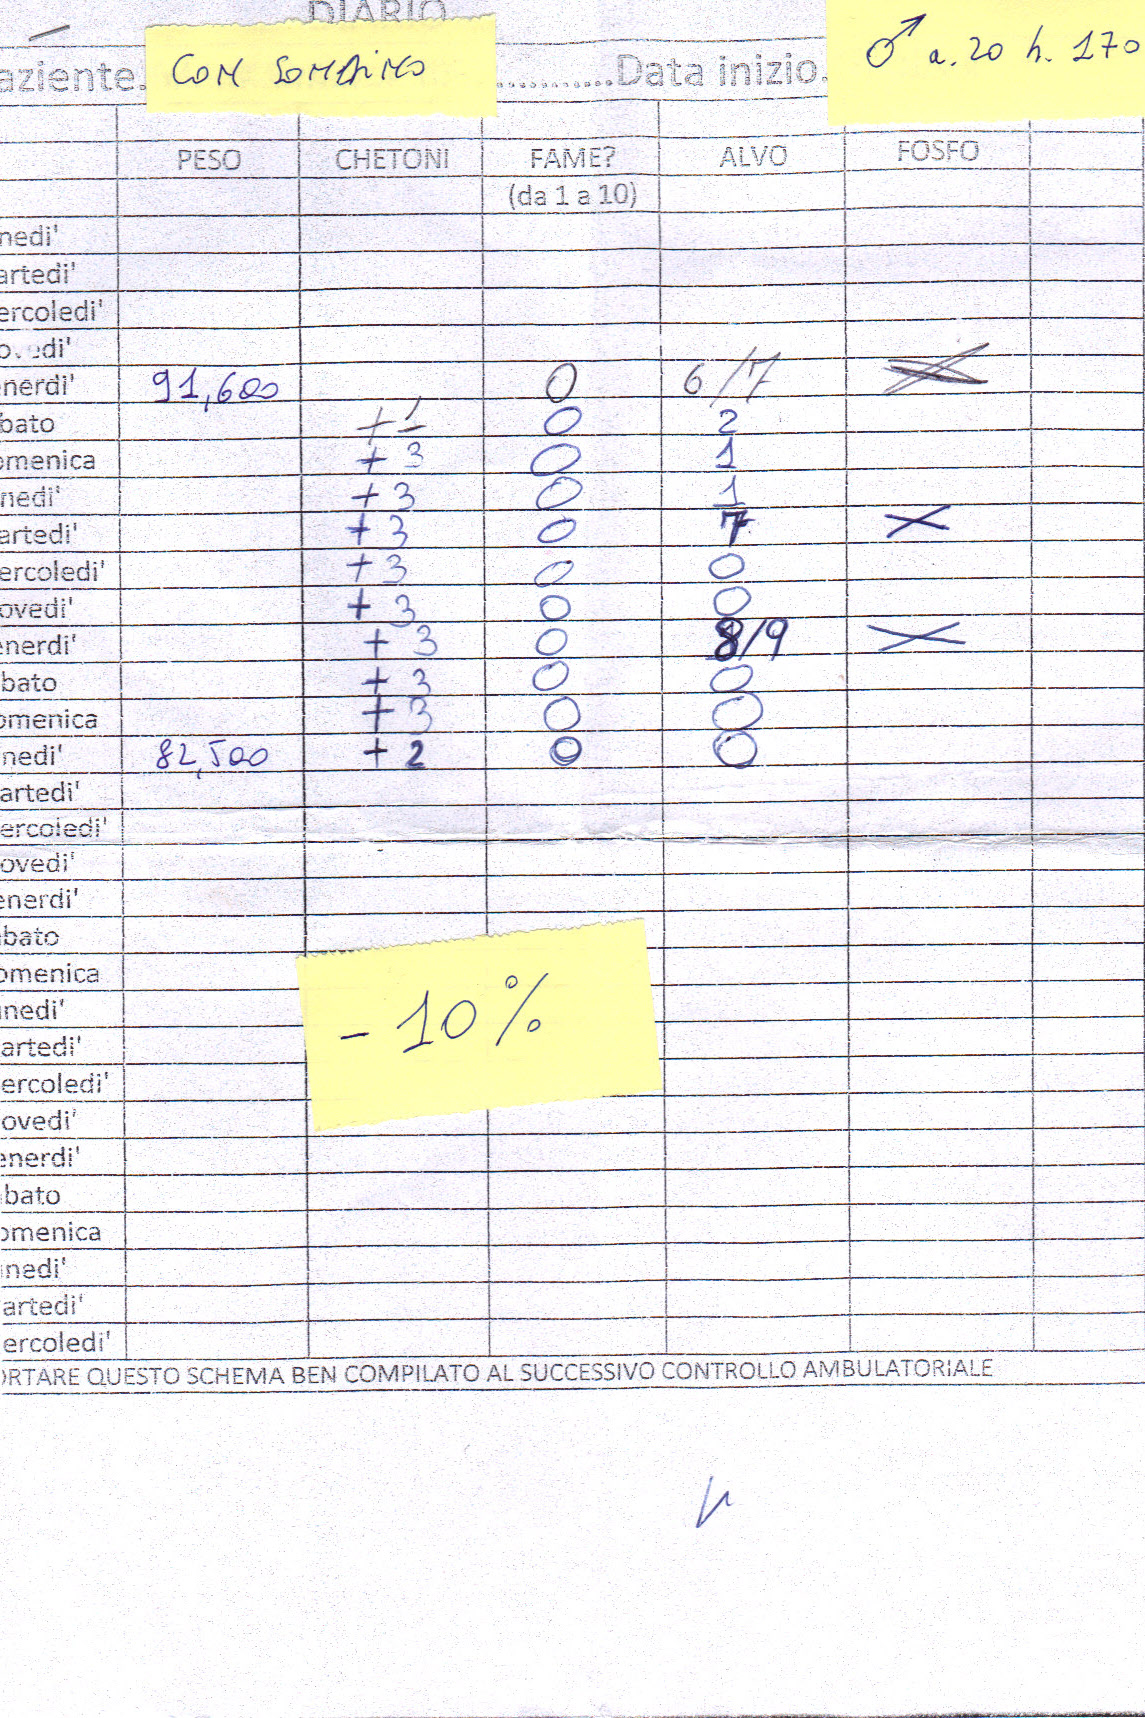 DIARIO
aziente. CON SONDINO ............Data inizio. ♂ a. 20 h. 170
PESO CHETONI FAME? ALVO FOSFO
(da 1 a 10)
nedi'
artedi'
ercoledi'
ovedi'
enerdi' 91,600 0 6/7
bato +1 0 2
omenica +3 0 1
nedi' +3 0 1
artedi' +3 0 7 X
ercoledi' +3 0 0
ovedi' +3 0 0
enerdi' +3 0 8/9 X
bato +3 0 0
omenica +3 0 0
nedi' 82,500 +2 0 0
artedi'
ercoledi'
ovedi'
enerdi'
bato
omenica
nedi'
artedi'
ercoledi'
ovedi'
enerdi'
bato
omenica
nedi'
artedi'
ercoledi'
- 10%
ORTARE QUESTO SCHEMA BEN COMPILATO AL SUCCESSIVO CONTROLLO AMBULATORIALE